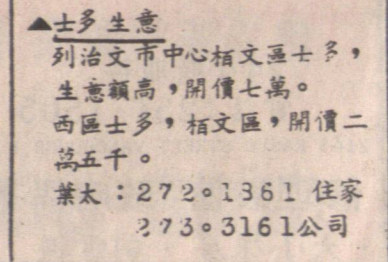 ▲士多生意
列治文市中心栢文區士多，
生意額高，開價七萬。
西區士多，栢文區，開價二
萬五千。
葉太：272。1361 住家
273。3161公司